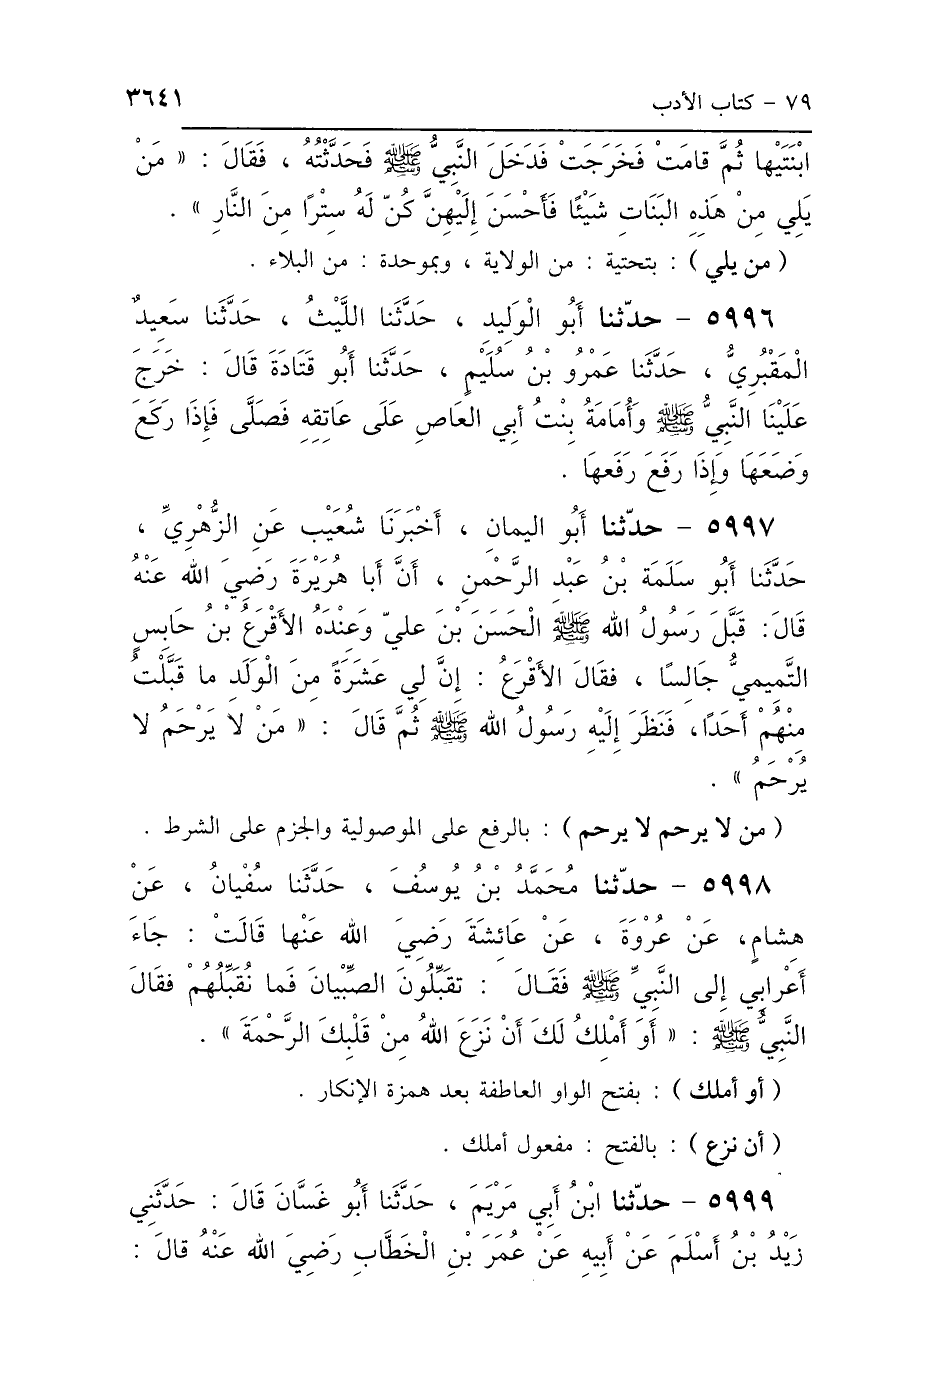 ٧٩ - كتاب الأدب ٣٦٤١
ابْنَتَيْها ثُمَّ قامَتْ فَخَرَجَتْ فَدَخَلَ النَّبِيُّ ﷺ فَحَدَّثْتُهُ ، فَقَالَ : « مَنْ
يَلِي مِنْ هَذِهِ البَنَاتِ شَيْئًا فَأَحْسَنَ إِلَيْهِنَّ كُنَّ لَهُ سِتْرًا مِنَ النَّارِ » .
( من يلي ) : بتحتية : من الولاية ، وبموحدة : من البلاء .
٥٩٩٦ - حدّثنا أَبُو الْوَلِيد ، حَدَّثَنا اللَّيْثُ ، حَدَّثَنا سَعِيدٌ
الْمَقْبُرِيُّ ، حَدَّثَنا عَمْرُو بْنُ سُلَيْمٍ ، حَدَّثَنا أَبُو قَتَادَةَ قَالَ : خَرَجَ
عَلَيْنَا النَّبِيُّ ﷺ وَأُمَامَةُ بِنْتُ أبي العَاصِ عَلَى عَاتِقِهِ فَصَلَّى فَإِذَا رَكَعَ
وَضَعَهَا وَإِذَا رَفَعَ رَفَعهَا .
٥٩٩٧ - حدّثنا أَبُو اليمانِ ، أَخْبَرَنَا شُعَيْب عَنِ الزُّهْرِيِّ ،
حَدَّثَنا أَبُو سَلَمَة بْنُ عَبْدِ الرَّحْمنِ ، أَنَّ أَبا هُرَيْرَةَ رَضِيَ الله عَنْهُ
قَالَ: قَبَّلَ رَسُولُ الله ﷺ الْحَسَنَ بْنَ عليّ وَعِنْدَهُ الأَقْرَعُ بْنُ حَابِسٍ
التَّمِيمِيُّ جَالِسًا ، فقَالَ الأَقْرَعُ : إِنَّ لِي عَشَرَةً مِنَ الْوَلَدِ ما قَبَّلْتُ
مِنْهُمْ أَحَدًا، فَنَظَرَ إِلَيْهِ رَسُولُ الله ﷺ ثُمَّ قَالَ : « مَنْ لا يَرْحَمُ لا
يُرْحَمُ » .
( من لا يرحم لا يرحم ) : بالرفع على الموصولية والجزم على الشرط .
٥٩٩٨ - حدّثنا مُحَمَّدُ بْنُ يُوسُفَ ، حَدَّثَنا سُفْيانُ ، عَنْ
هِشامٍ، عَنْ عُرْوَةَ ، عَنْ عَائِشَةَ رَضِيَ الله عَنْها قَالَتْ : جَاءَ
أَعْرابِي إلى النَّبِيِّ ﷺ فَقَالَ : تقبِّلُونَ الصِّبْيانَ فَما نُقَبِّلُهُمْ فقَالَ
النَّبِيُّ ﷺ : « أَوَ أَمْلِكُ لَكَ أَنْ نَزَعَ اللهُ مِنْ قَلْبِكَ الرَّحْمَةَ » .
( أو أملك ) : بفتح الواو العاطفة بعد همزة الإنكار .
( أن نزع ) : بالفتح : مفعول أملك .
٥٩٩٩ - حدّثنا ابْنُ أَبِي مَرْيَمَ ، حَدَّثَنا أَبُو غَسَّانَ قَالَ : حَدَّثَنِي
زَيْدُ بْنُ أَسْلَمَ عَنْ أَبِيهِ عَنْ عُمَرَ بْنِ الْخَطَّابِ رَضِيَ الله عَنْهُ قالَ :